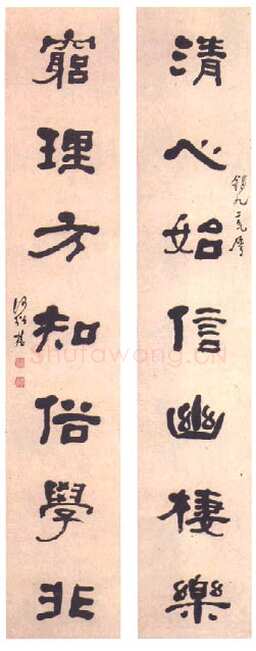 清心始信幽棲樂
窮理方知俗學非
何紹基
Shufawang.CN